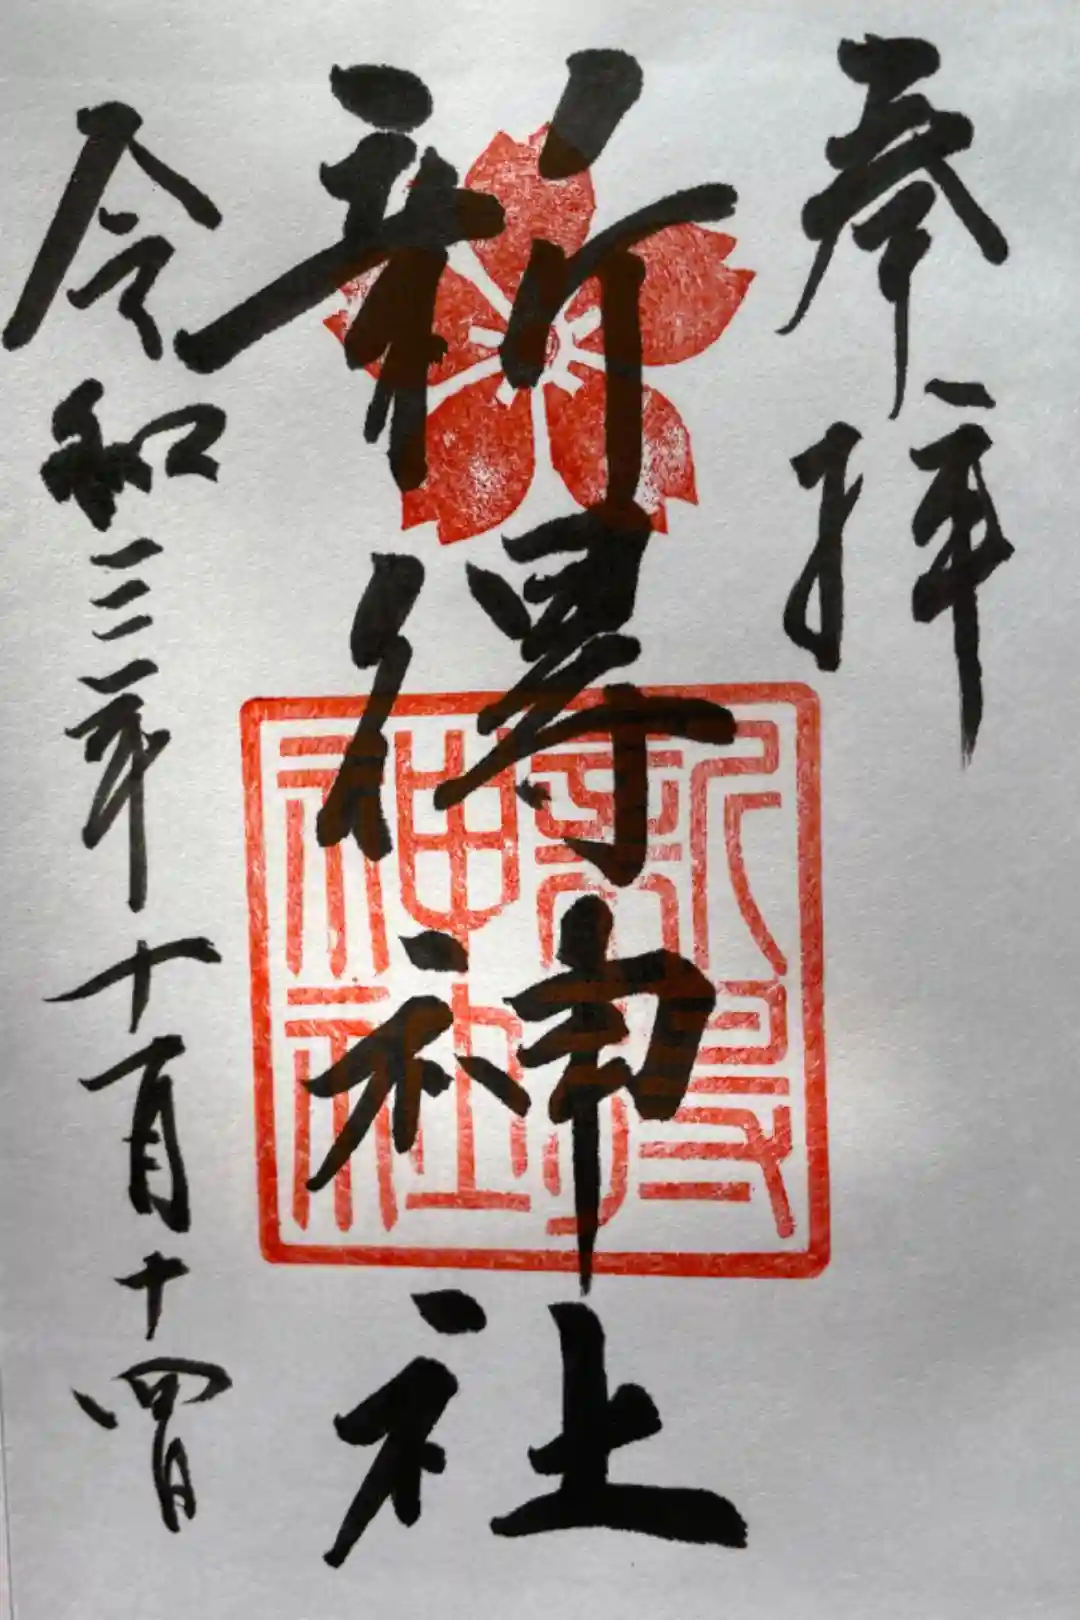 奉拝
新得神社
新得神社
令和三年十月十四日